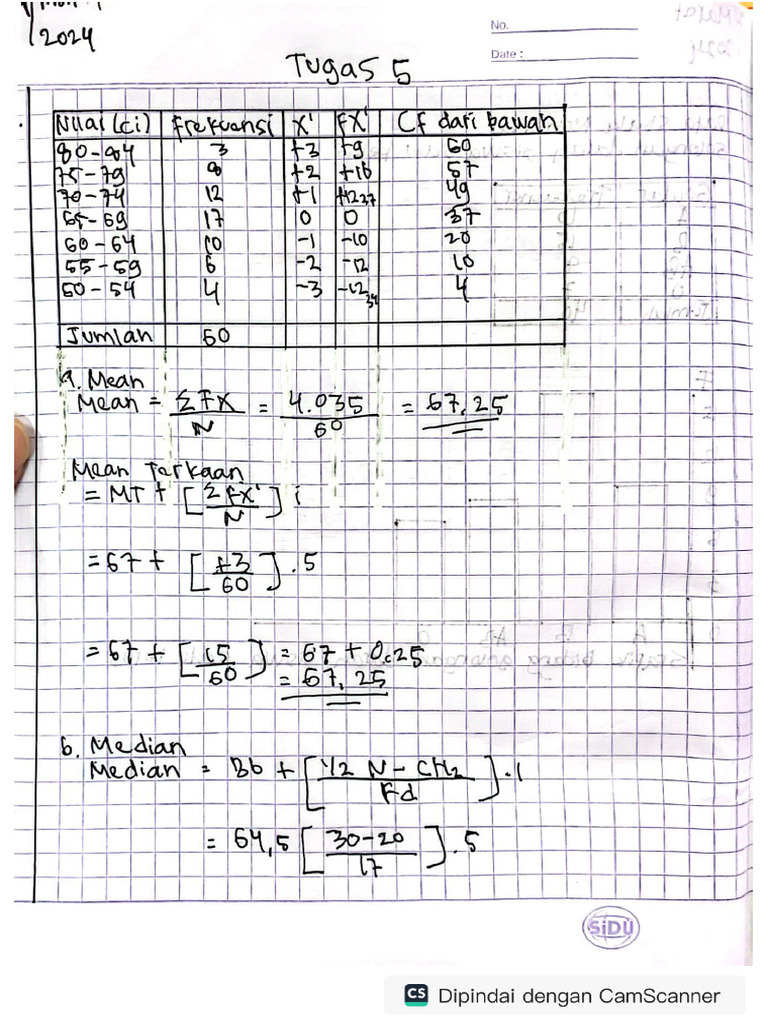 2024
No.
Date :
Tugas 5
Nilai (ci) Frekuensi X' FX' CF dari bawah
80-84 3 +3 +9 60
75-79 8 +2 +16 57
70-74 12 +1 +12 37 49
65-69 17 0 0 37
60-64 10 -1 -10 20
55-59 6 -2 -12 10
50-54 4 -3 -12 34 4
Jumlah 60
a. Mean
Mean = ΣFX / N = 4.035 / 60 = 67,25
Mean Terkaan
= MT + [ΣFX' / N] i
= 67 + [+3 / 60] . 5
= 67 + [15 / 60] = 67 + 0,25
= 67,25
b. Median
Median = Bb + [1/2 N - CH2 / Fd] . i
= 64,5 [30-20 / 17] . 5
SiDU
CS Dipindai dengan CamScanner